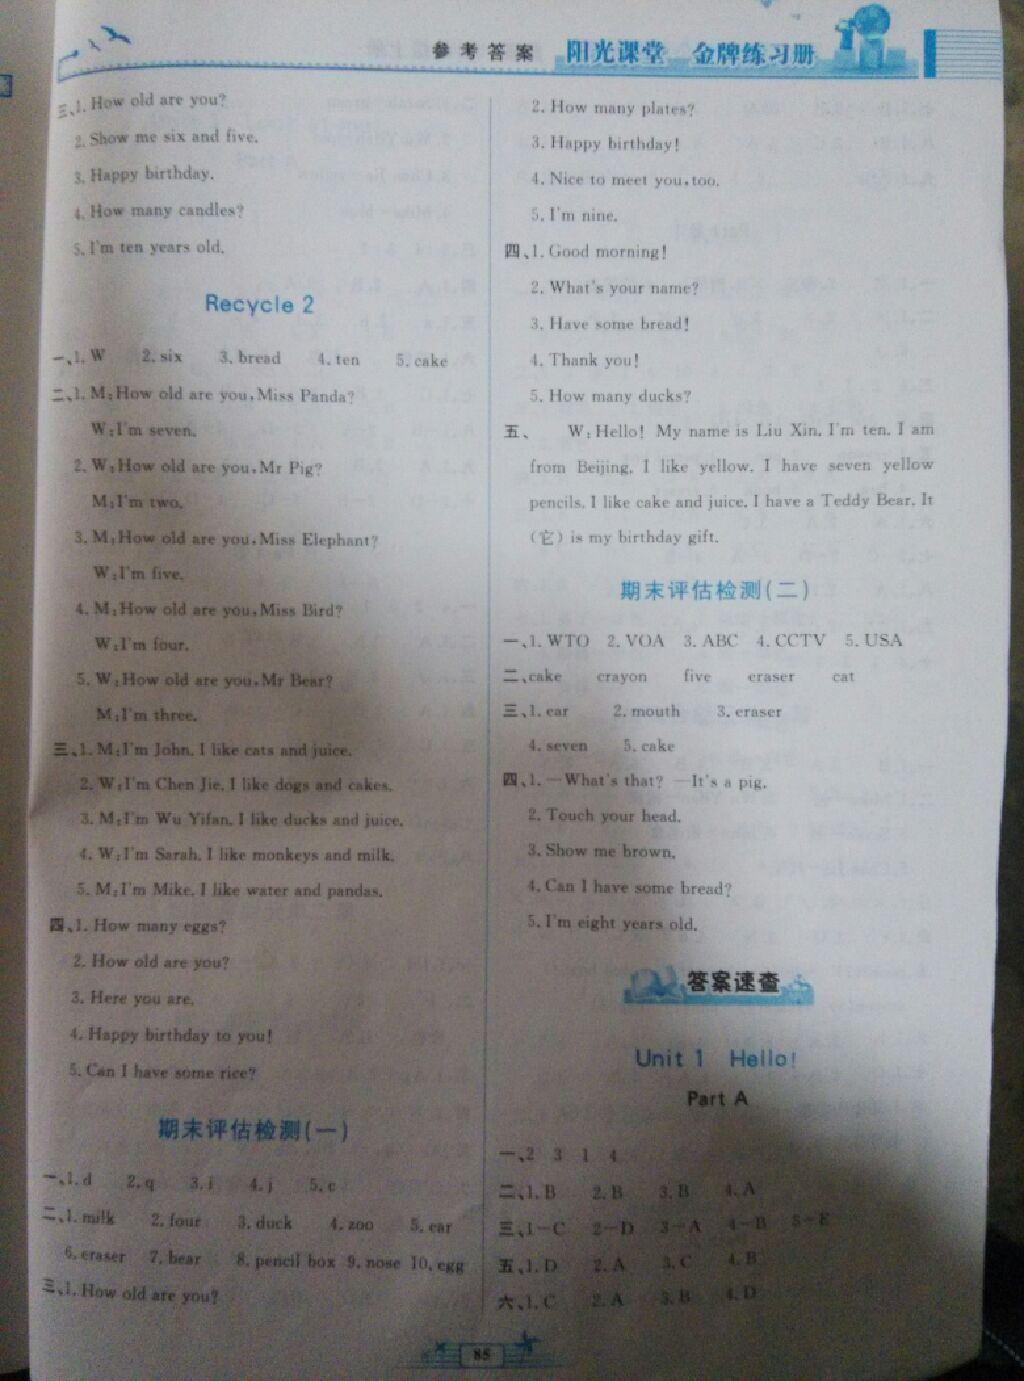 参考答案 阳光课堂 金牌练习册
三、1. How old are you?
2. Show me six and five.
3. Happy birthday.
4. How many candles?
5. I'm ten years old.
Recycle 2
一、1. W 2. six 3. bread 4. ten 5. cake
二、1. M:How old are you,Miss Panda?
W:I'm seven.
2. W:How old are you,Mr Pig?
M:I'm two.
3. M:How old are you,Miss Elephant?
W:I'm five.
4. M:How old are you,Miss Bird?
W:I'm four.
5. W:How old are you,Mr Bear?
M:I'm three.
三、1. M:I'm John. I like cats and juice.
2. W:I'm Chen Jie. I like dogs and cakes.
3. M:I'm Wu Yifan. I like ducks and juice.
4. W:I'm Sarah. I like monkeys and milk.
5. M:I'm Mike. I like water and pandas.
四、1. How many eggs?
2. How old are you?
3. Here you are.
4. Happy birthday to you!
5. Can I have some rice?
期末评估检测(一)
一、1. d 2. q 3. i 4. j 5. c
二、1. milk 2. four 3. duck 4. zoo 5. ear
6. eraser 7. bear 8. pencil box 9. nose 10. egg
三、1. How old are you?
2. How many plates?
3. Happy birthday!
4. Nice to meet you,too.
5. I'm nine.
四、1. Good morning!
2. What's your name?
3. Have some bread!
4. Thank you!
5. How many ducks?
五、 W:Hello! My name is Liu Xin. I'm ten. I am
from Beijing. I like yellow. I have seven yellow
pencils. I like cake and juice. I have a Teddy Bear. It
(它) is my birthday gift.
期末评估检测(二)
一、1. WTO 2. VOA 3. ABC 4. CCTV 5. USA
二、cake crayon five eraser cat
三、1. ear 2. mouth 3. eraser
4. seven 5. cake
四、1. —What's that? —It's a pig.
2. Touch your head.
3. Show me brown.
4. Can I have some bread?
5. I'm eight years old.
答案速查
Unit 1 Hello!
Part A
一、2 3 1 4
二、1. B 2. B 3. B 4. A
三、1—C 2—D 3—A 4—B 5—E
五、1. D 2. A 3. C 4. B
六、1. C 2. A 3. B 4. D
85